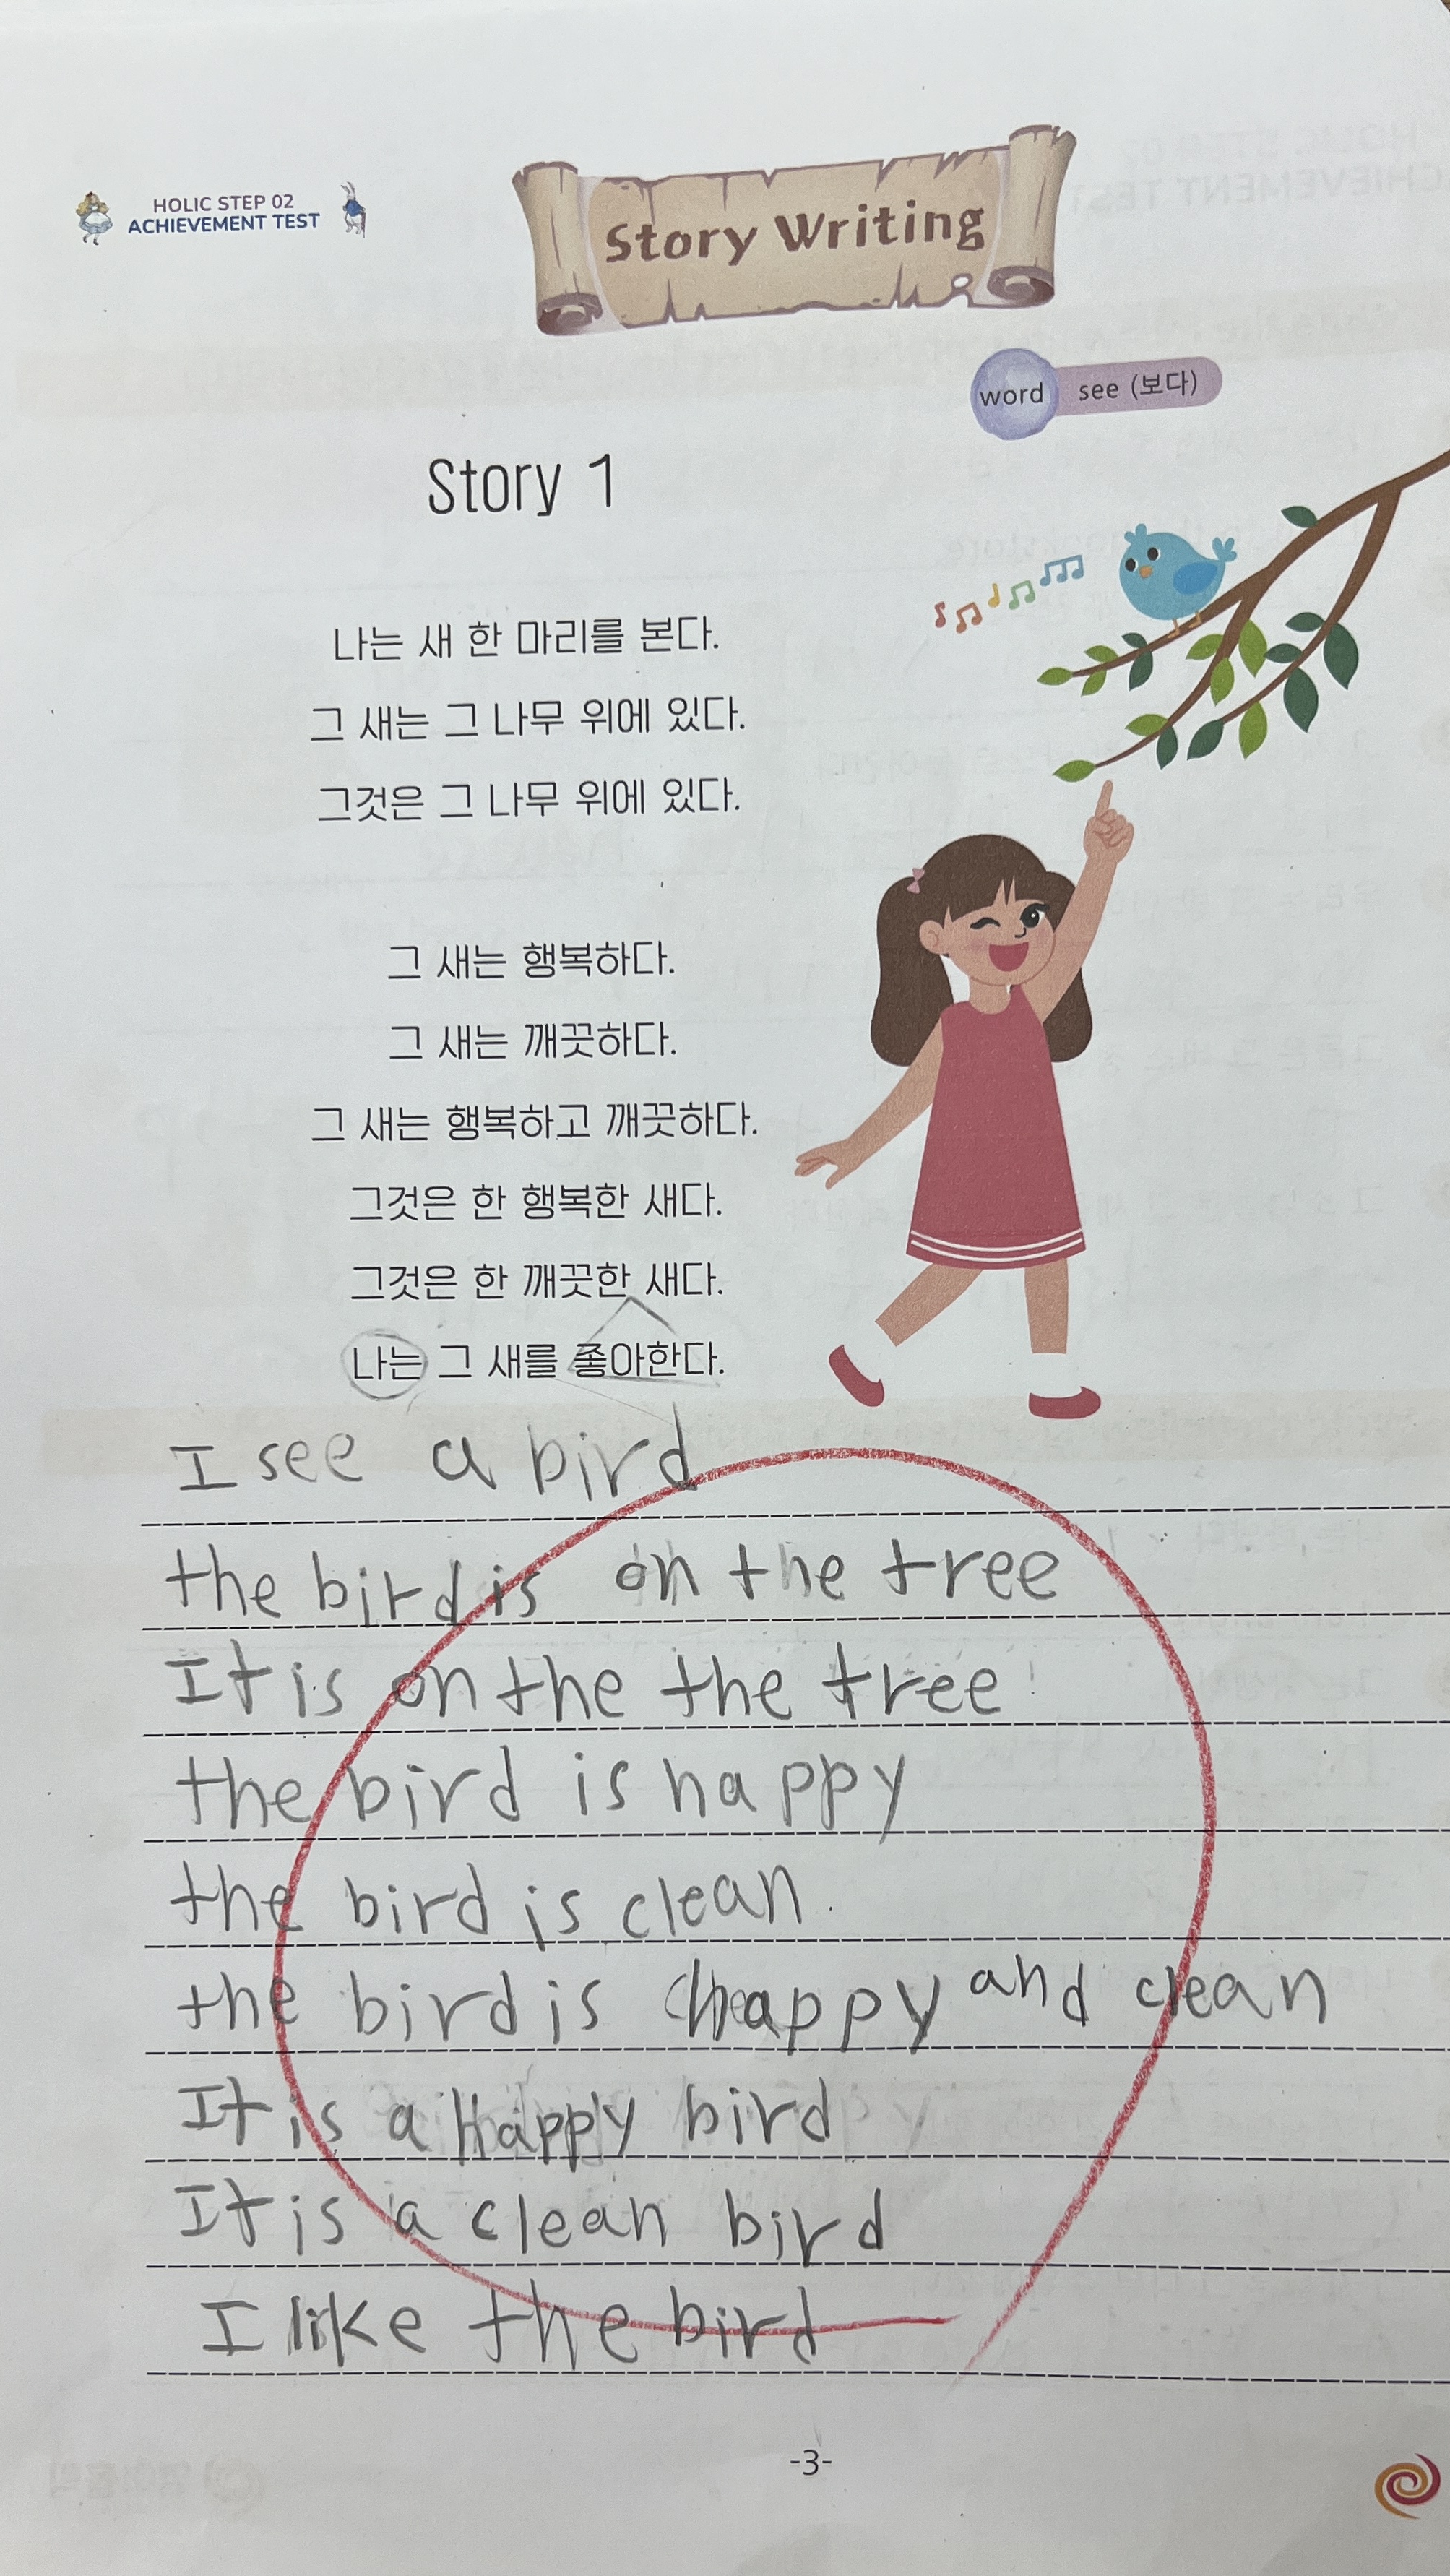 HOLIC STEP 02
ACHIEVEMENT TEST
Story Writing
word see (보다)
Story 1
나는 새 한 마리를 본다.
그 새는 그 나무 위에 있다.
그것은 그 나무 위에 있다.
그 새는 행복하다.
그 새는 깨끗하다.
그 새는 행복하고 깨끗하다.
그것은 한 행복한 새다.
그것은 한 깨끗한 새다.
나는 그 새를 좋아한다.
I see a bird
the bird is on the tree
It is on the the tree
the bird is happy
the bird is clean.
the bird is happy and clean
It is a Happy bird
It is a clean bird
I like the bird
-3-